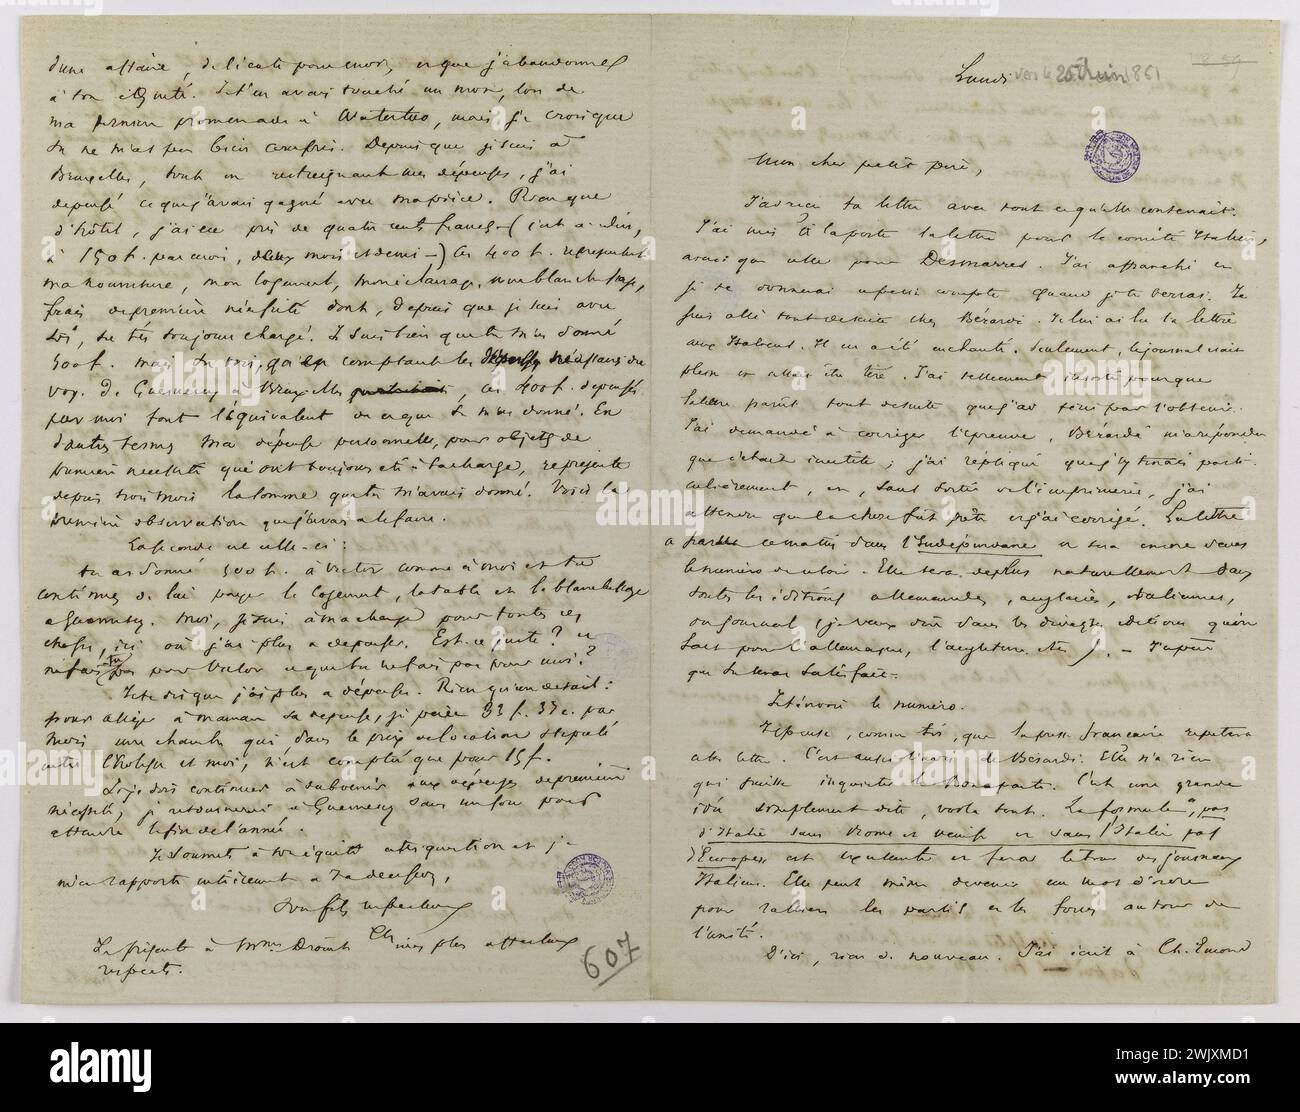 Lundi vers le 25 Juin 1861
Mon cher petit père,
J'ai reçu ta lettre avec tout ce qu'elle contenait.
J'ai mis à la poste ta lettre pour le comité Italien,
ainsi que celle pour Desmarres. J'ai affranchi et
je te donnerai un petit compte quand je te verrai. Je
suis allé tout de suite chez Bérardi. Je lui ai lu ta lettre
aux Italiens. Il en a été enchanté. Seulement, le journal était
plein et allait être tiré. J'ai tellement insisté pour que
la lettre parût tout de suite que j'ai fini par l'obtenir.
J'ai demandé à corriger l'épreuve, Bérardi m'a répondu
que c'était inutile; j'ai répliqué que j'y tenais parti-
culièrement, et, sans sortir de l'imprimerie, j'ai
attendu que la chose fût prête et j'ai corrigé. La lettre
a paru ce matin dans l'Indépendance et sera encore dans
le numéro de ce soir. Elle sera de plus naturellement dans
toutes les éditions allemandes, anglaises, italiennes,
du journal (je veux dire dans les diverses éditions qu'on
fait pour l'Allemagne, l'Angleterre etc). - J'espère
que tu seras satisfait.
Je t'envoie le numéro.
Je pense, comme toi, que la presse française répètera
cette lettre. C'est aussi l'avis de Bérardi. Elle n'a rien
qui puisse inquiéter le Bonaparte. C'est une grande
idée simplement dite, voilà tout. La formule, pas
d'Italie sans Rome et Venise et sans l'Italie pas
d'Europe est excellente et fera le tour des journaux
Italiens. Elle peut même devenir un mot d'ordre
pour rallier les partis et les forces autour de
l'unité.
D'ici, rien de nouveau. J'ai écrit à Ch. Edmond
d'une affaire, délicate pour moi, et que j'abandonne
à ton équité. Je t'en avais touché un mot, lors de
ma dernière promenade à Waterloo, mais je crois que
tu ne m'as pas bien compris. Depuis que je suis à
Bruxelles, tout en restreignant mes dépenses, j'ai
dépensé ce que j'avais gagné avec ma pièce. Rien que
d'hôtel, j'ai eu près de quatre cents francs - (c'est à dire,
à 150 f. par mois, deux mois et demi -) Ces 400 f. représentent
ma nourriture, mon logement, mon éclairage, mon blanchissage,
frais de première nécessité dont, depuis que je suis avec
toi, tu t'es toujours chargé. Je sais bien que tu m'as donné
500 f. mais tu vois, qu'en comptant les dépenses du
voy. de Guernesey à Bruxelles, ces 400 f. dépensés
par moi font l'équivalent de ce que tu m'as donné. En
d'autres termes ma dépense personnelle, pour objets de
première nécessité qui ont toujours été à ta charge, représente
depuis trois mois la somme que tu m'avais donné. Voici la
première observation que j'avais à te faire.
La seconde est celle-ci:
tu as donné 500 f. à Victor comme à moi et tu
continues de lui payer le logement, la table et le blanchissage
à Guernesey. Moi, je suis à ma charge pour toutes ces
choses, ici où j'ai plus à dépenser. Est-ce juste? et
ne fais-tu pas pour Victor ce que tu ne fais pas pour moi?
Je te dis que j'ai plus à dépenser. Rien qu'un détail:
pour alléger à maman sa dépense, je paie 33 f. 33 c. par
mois une chambre qui, dans le prix de location stipulé
entre l'hôtesse et moi, n'est comptée que pour 15 f.
Si je dois continuer à subvenir aux dépenses de première
nécessité, je retournerai à Guernesey sans un sou pour
attendre la fin de l'année.
Je soumets à ton équité cette question et je
m'en rapporte entièrement à ta décision,
Ton fils respectueux
Ch
Je présente à Mme Drouet mes plus affectueux
respects.
607